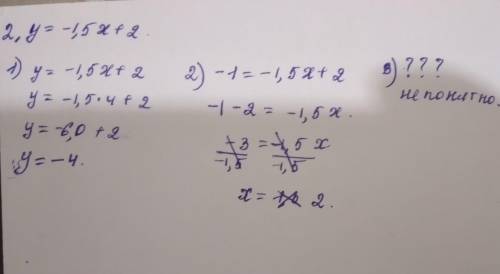 2, y = -1,5x + 2.
1) y = -1,5x + 2
y = -1,5 · 4 + 2
y = -6,0 + 2
y = -4.
2) -1 = -1,5x + 2
-1 - 2 = -1,5x.
-3 = -1,5 x
-1,5 -1,5
x = 2.
в) ???
не понятно.